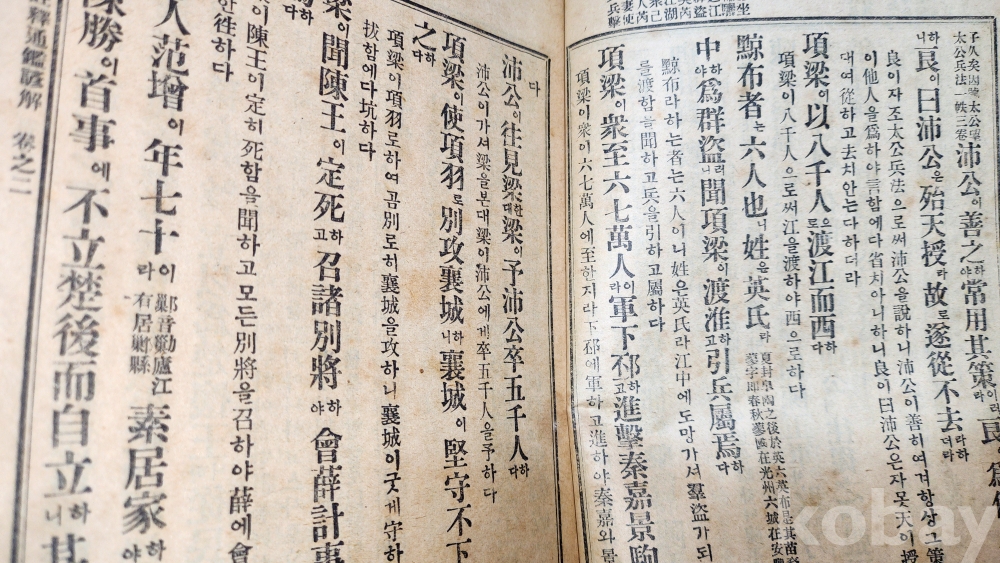 子久矣因陳太公望
太公兵法一帙三卷
沛公이善之하야常用其策이라良이爲
니良이曰沛公은殆天授라故로遂從不去라하더라
良이자조太公兵法으로써沛公을說하니沛公이善히여겨항상그策
이他人을爲하야言함에다省치아니하니良이曰沛公은자못天이授
대여從하고去치안는다하더라
項梁이以八千人으로渡江而西하다
項梁이八千人으로써江을渡하야西으로하다
黥布者는六人也니姓은英氏라
中하야爲群盜러니聞項梁이渡淮하고引兵屬焉하다
黥布라하는者는六人이니姓은英氏라江中에도망가셔羣盜가되
를渡함을聞하고兵을引하고屬하다
項梁이衆至六七萬人이라軍下邳하고進擊秦嘉景駒
項梁이衆이六七萬人에至한지라下邳에軍하고進하야秦嘉와
다
沛公이往見梁한대梁이予沛公卒五千人하다
沛公이가셔梁을본대梁이沛公에게卒五千人을予하다
項梁이使項羽로別攻襄城하니襄城이堅守不下
之하다
項梁이項羽로하여곰別로히襄城을攻하니襄城이굿게守하
拔함에다坑하다
梁이聞陳王이定死하고召諸別將하야會薛計事
하다
이陳王이定히死함을聞하고모든別將을召하야薛에會
한대往하다
人范增이年七十이라
鄛音勦廬江
有居鄛縣
素居家하야
陳勝이首事에不立楚後而自立하니其
註釋通鑑諺解 卷之二
kobay